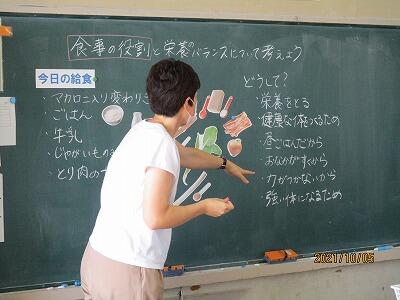 食事の役割と栄養のバランスについて考えよう
今日の給食
・マカロニ入り変わりき
・ごはん
・牛乳
・じゃがいもの
・とり肉の
どうして?
・栄養をとる
・健康な体をつくるため
・昼ごはんだから
・おなかがすくから
・力がつかないから
・強い体になるため
2021/10/05